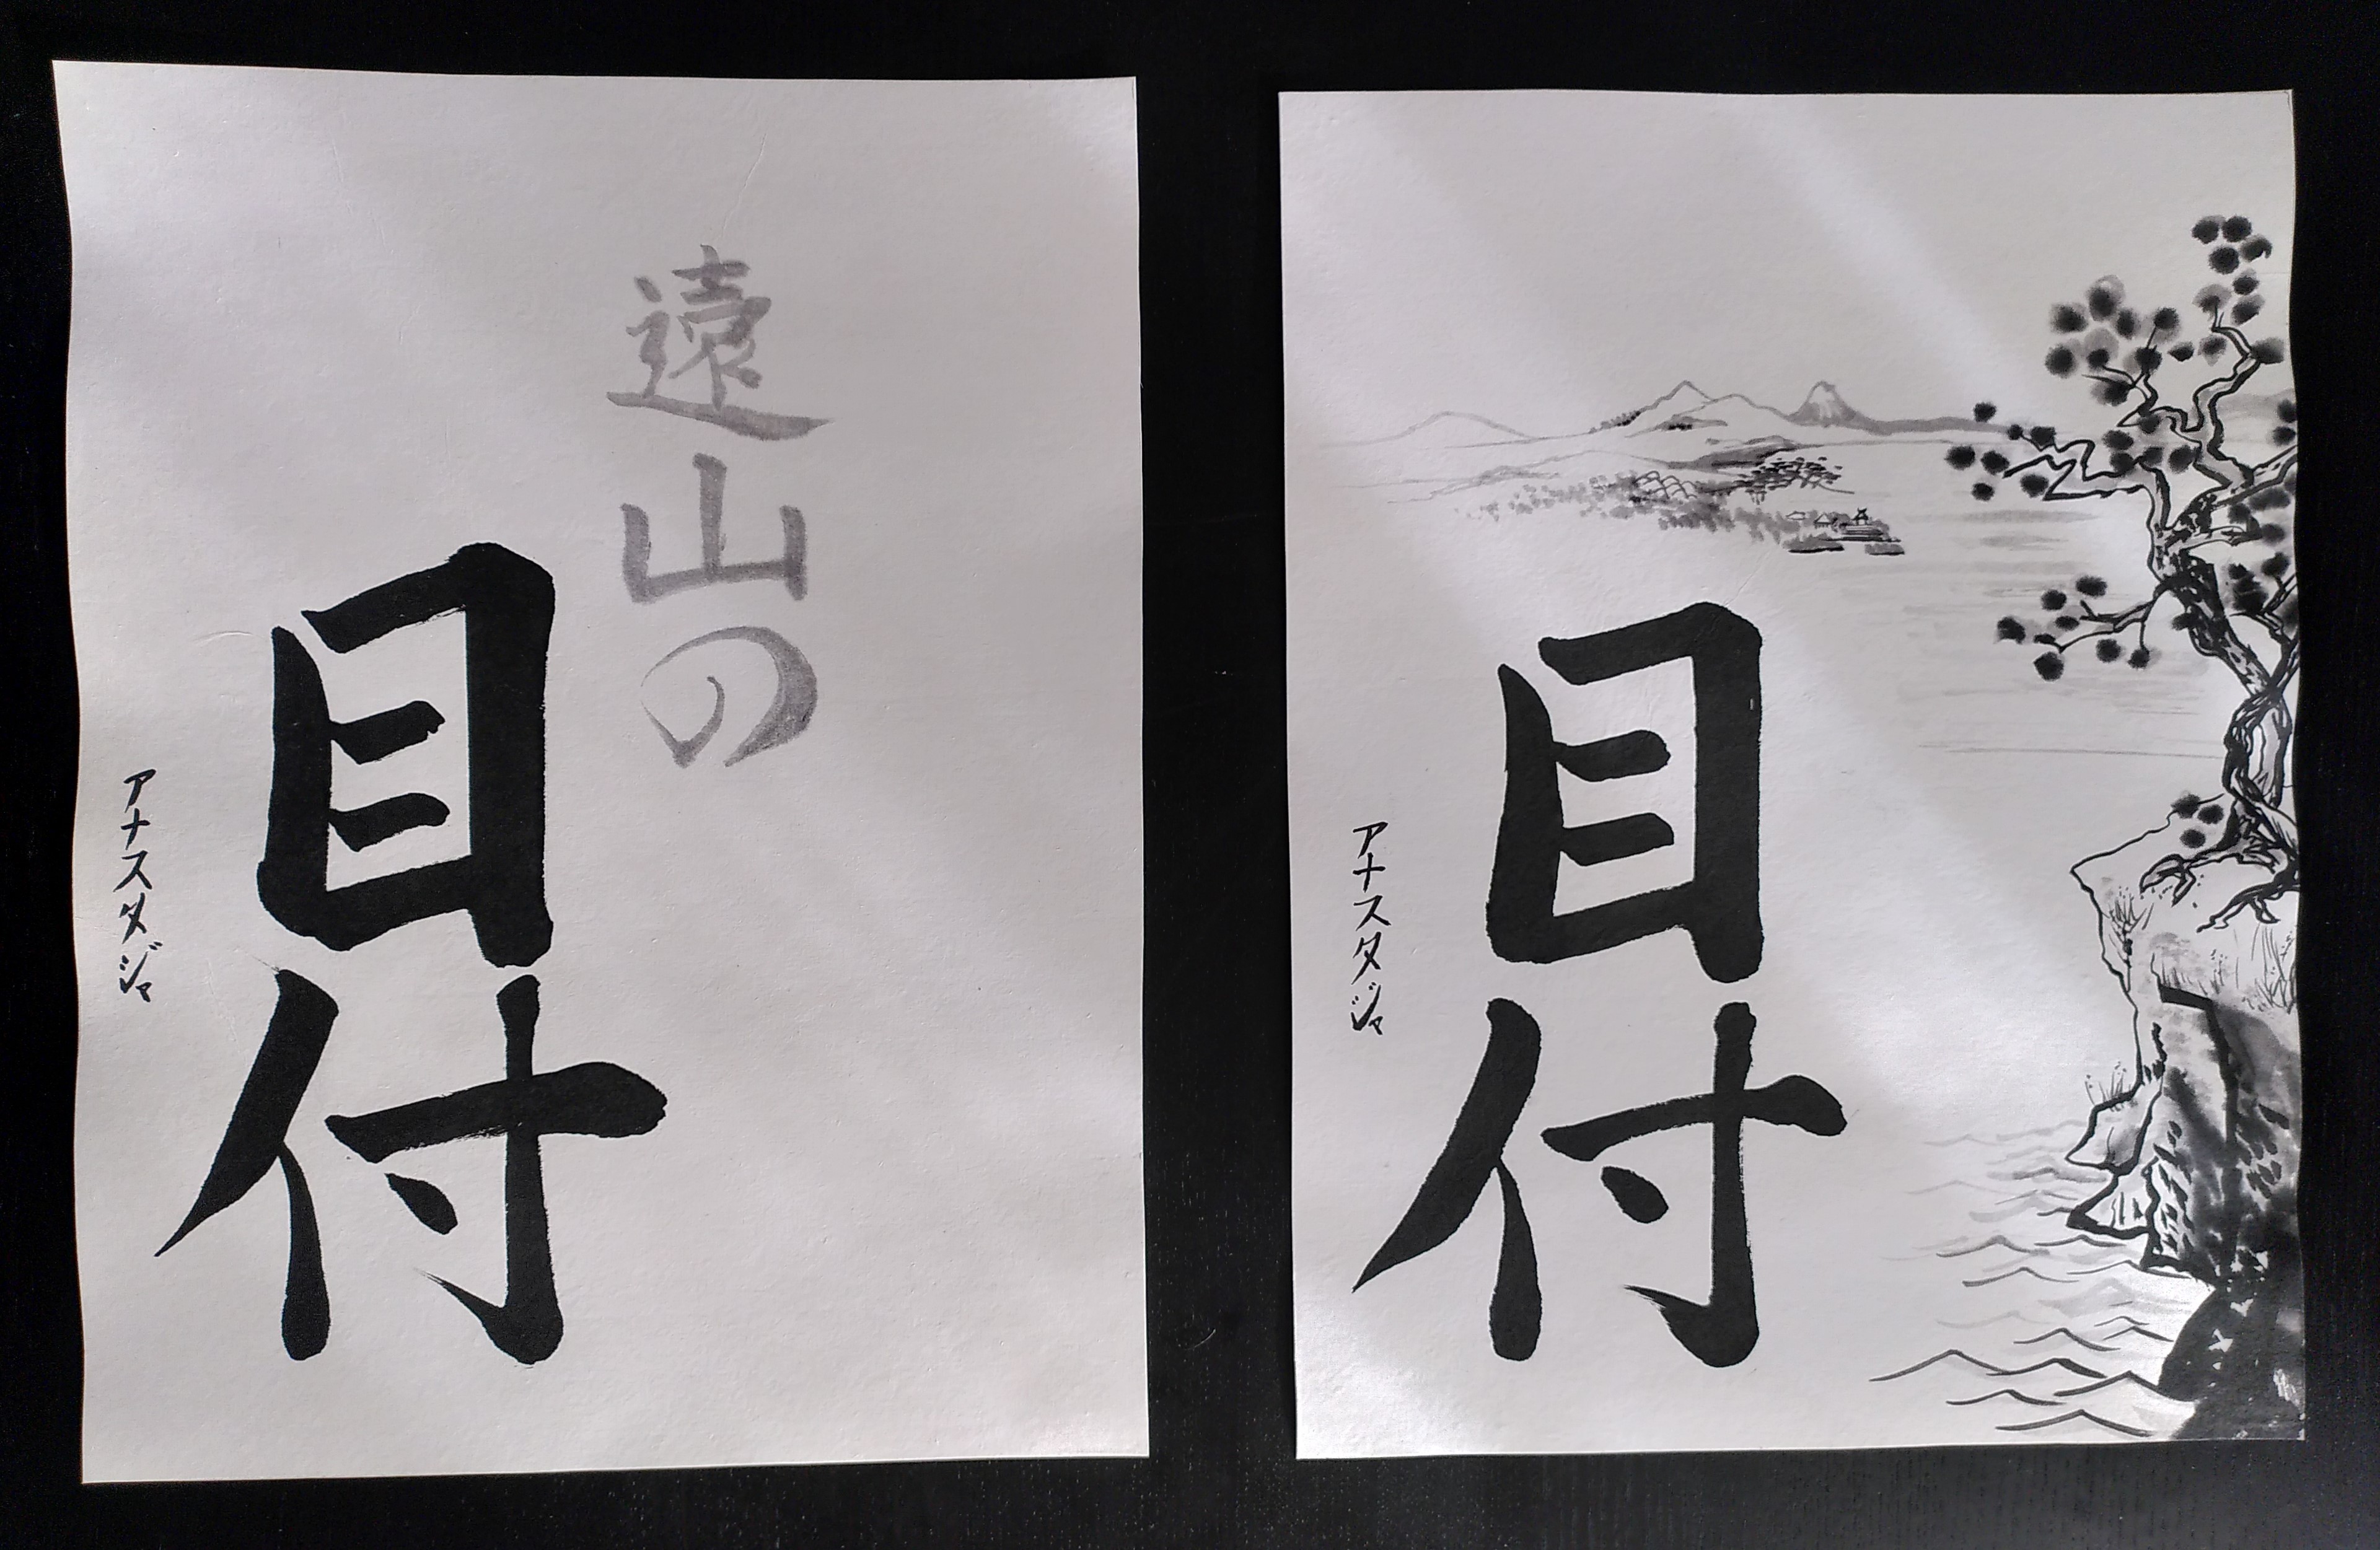 遠山の
目付
アナスタジャ
目付
アナスタジャ